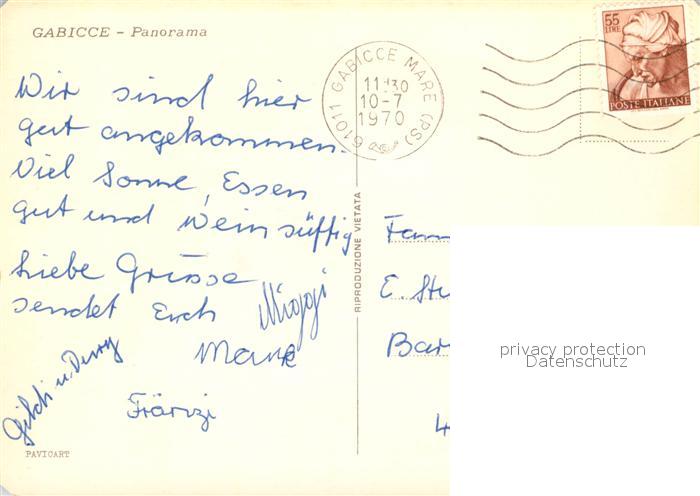 GABICCE - Panorama
55
LIRE
POSTE ITALIANE
61011 GABICCE MARE (PS)
11·30
10-7
1970
Wir sind hier
gut angekommen.
Viel Sonne, Essen
gut und Wein süffig
Liebe Grüsse
sendet Euch
RIPRODUZIONE VIETATA
PAVICART
Fam
E. Stu
Bar
4
privacy protection
Datenschutz